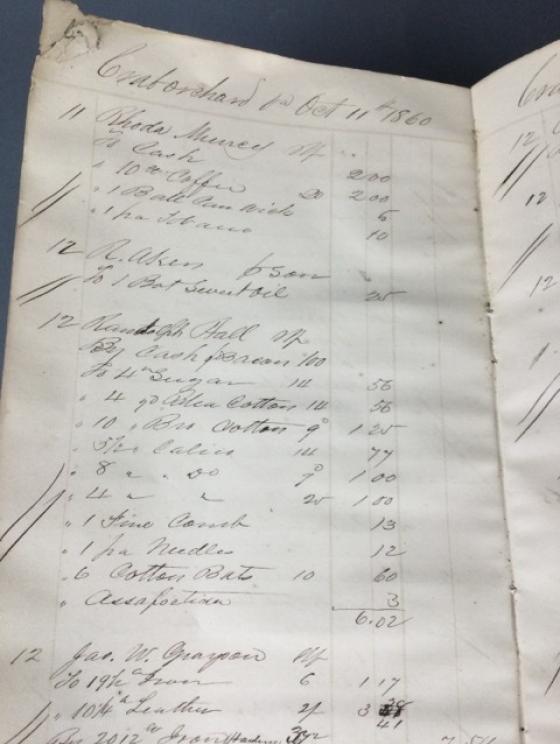 Craborchard Oct 11th 1860
11 Rhoda Muncy
To Cash 2 00
" 10 lb Coffee 20 2 00
" 1 Ball Can Wick 5
" 1 pa 10
12 R. Aken & Son
To 1 Bot Sweet Oil 25
12 Randolph Hall
By Cash & Bacon 100
To 4 lb Sugar 14 56
" 4 yd Cotton 14 56
" 10 " Bro Cotton 9° 1 25
" 5½ " Calico 14 77
" 8 " " Do 9° 1 00
" 4 " " 25 1 00
" 1 Fine Comb 13
" 1 pa Needles 12
" 6 Cotton Bats 10 60
" Assafoetida 3
6.02
12 Jas. W. Grayson
To 19½ lb Iron 6 1 17
" 10¼ lb Leather 3
41
By 2012 lb Iron